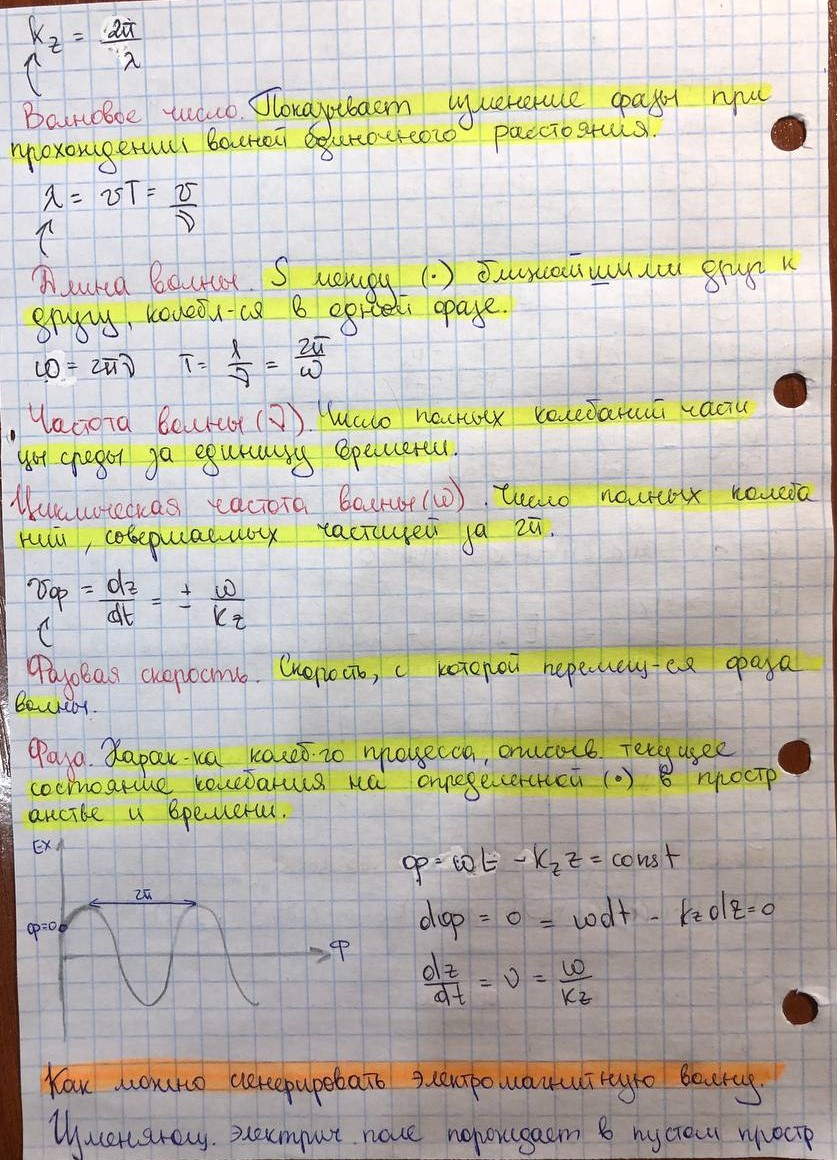 k_z = 2π/λ
Волновое число. Показывает изменение фазы при
прохождении волной единочного расстояния.
λ = vT = v/ν
Длина волны. S между (·) ближайшими друг к
другу, колебл-ся в одной фазе.
ω = 2πν T = 1/ν = 2π/ω
Частота волны (ν). Число полных колебаний части
цы среды за единицу времени.
Циклическая частота волны (ω). Число полных колеба
ний, совершаемых частицей за 2π.
vф = dz/dt = ± ω/k_z
Фазовая скорость. Скорость, с которой перемещ-ся фаза
волны.
Фаза. Харак-ка колеб-го процесса, описыв. текущее
состояние колебания на определенной (·) в простр
анстве и времени.
Ex
2π
φ=0
φ
φ = ωt - k_z z = const
dφ = 0 = ωdt - k_z dz = 0
dz/dt = ν = ω/k_z
Как можно сгенерировать электромагнитную волну.
Изменяющ. электрич. поле порождает в пустом простр